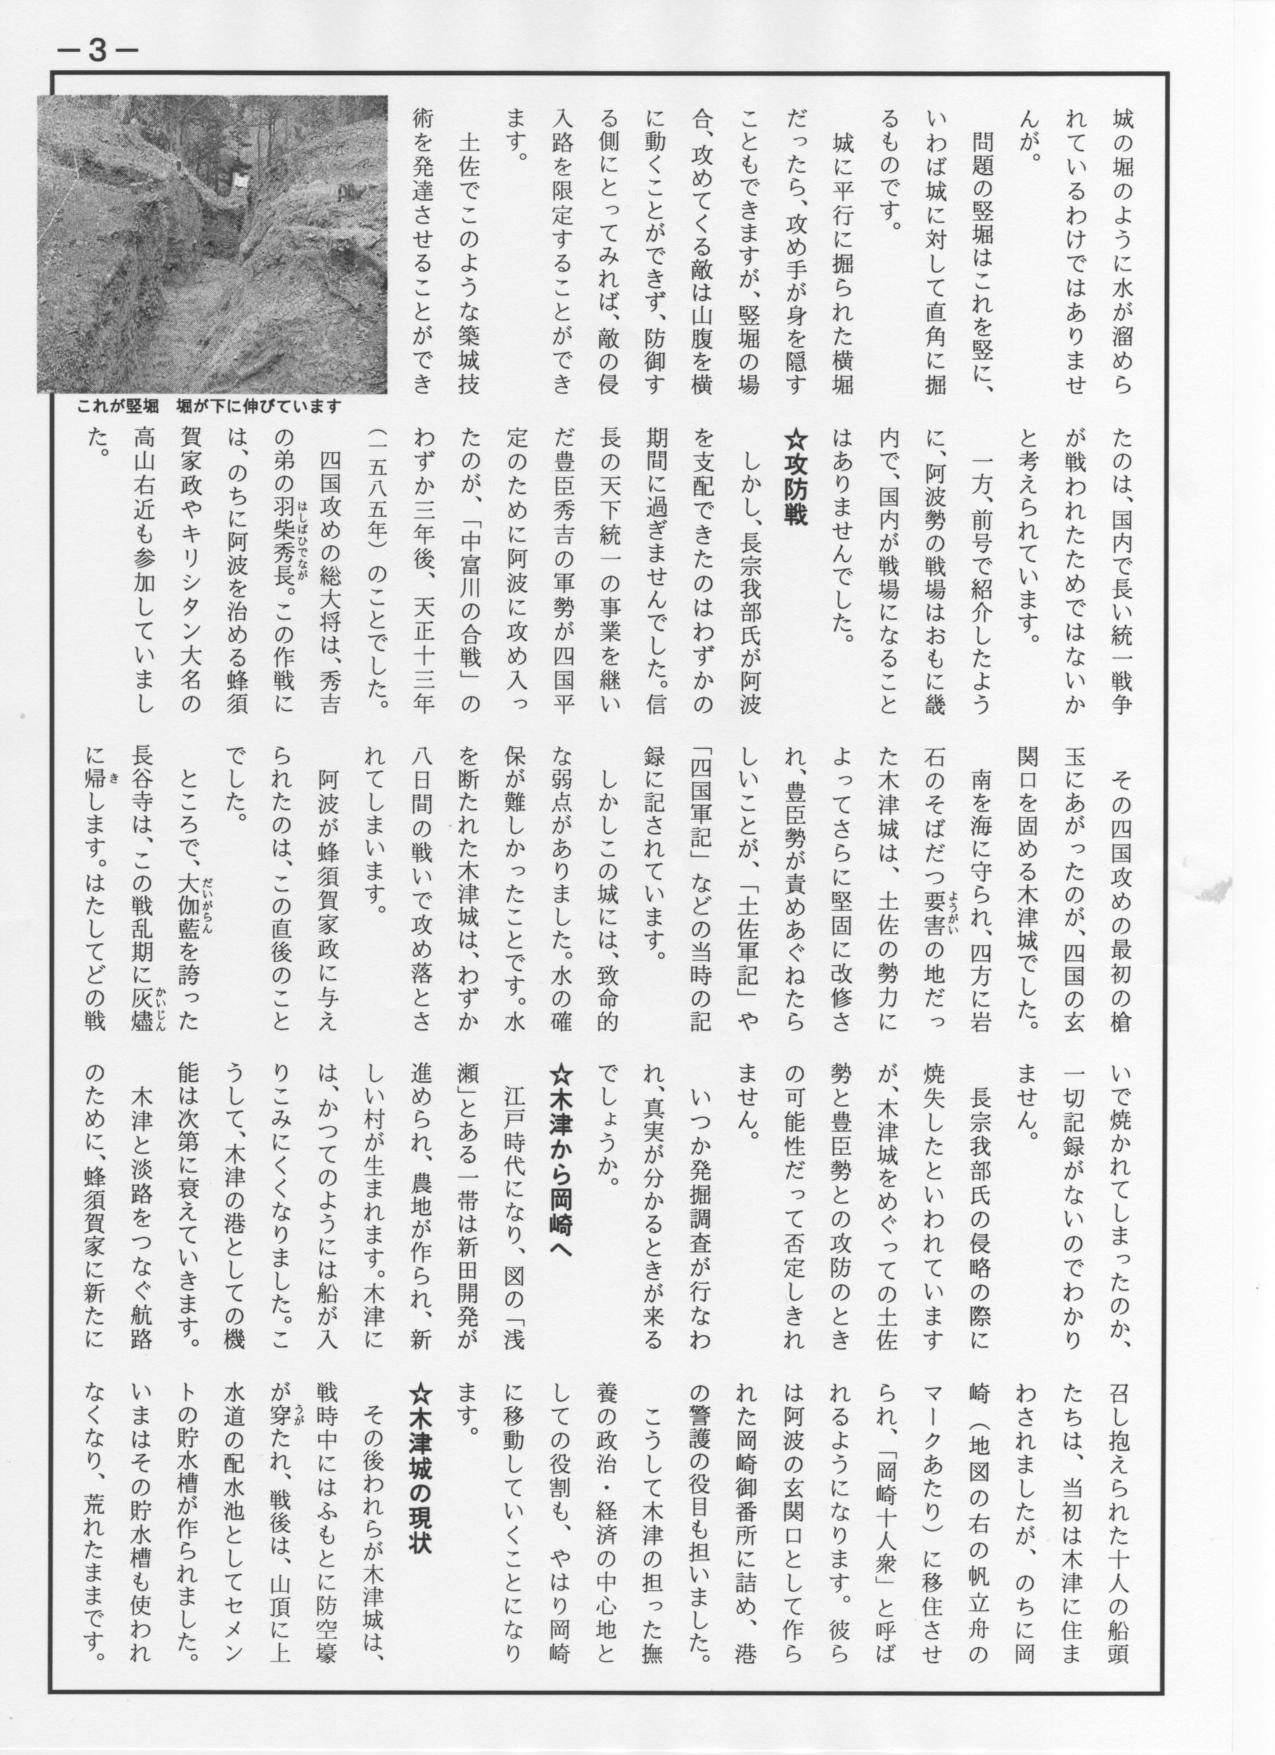 －3－
城の堀のように水が溜めら
れているわけではありませ
んが。
問題の竪堀はこれを竪に、
いわば城に対して直角に掘
るものです。
城に平行に掘られた横堀
だったら、攻め手が身を隠す
こともできますが、竪堀の場
合、攻めてくる敵は山腹を横
に動くことができず、防御す
る側にとってみれば、敵の侵
入路を限定することができ
ます。
土佐でこのような築城技
術を発達させることができ
これが竪堀　堀が下に伸びています
たのは、国内で長い統一戦争
が戦われたためではないか
と考えられています。
一方、前号で紹介したよう
に、阿波勢の戦場はおもに畿
内で、国内が戦場になること
はありませんでした。
☆攻防戦
しかし、長宗我部氏が阿波
を支配できたのはわずかの
期間に過ぎませんでした。信
長の天下統一の事業を継い
だ豊臣秀吉の軍勢が四国平
定のために阿波に攻め入っ
たのが、「中富川の合戦」の
わずか三年後、天正十三年
（一五八五年）のことでした。
四国攻めの総大将は、秀吉
の弟の羽柴秀長。この作戦に
はしばひでなが
は、のちに阿波を治める蜂須
賀家政やキリシタン大名の
高山右近も参加していまし
た。
その四国攻めの最初の槍
玉にあがったのが、四国の玄
関口を固める木津城でした。
南を海に守られ、四方に岩
石のそばだつ要害の地だっ
ようがい
た木津城は、土佐の勢力に
よってさらに堅固に改修さ
れ、豊臣勢が責めあぐねたら
しいことが、「土佐軍記」や
「四国軍記」などの当時の記
録に記されています。
しかしこの城には、致命的
な弱点がありました。水の確
保が難しかったことです。水
を断たれた木津城は、わずか
八日間の戦いで攻め落とさ
れてしまいます。
阿波が蜂須賀家政に与え
られたのは、この直後のこと
でした。
ところで、大伽藍を誇った
だいがらん
長谷寺は、この戦乱期に灰燼
かいじん
に帰します。はたしてどの戦
き
いで焼かれてしまったのか、
一切記録がないのでわかり
ません。
長宗我部氏の侵略の際に
焼失したといわれています
が、木津城をめぐっての土佐
勢と豊臣勢との攻防のとき
の可能性だって否定しきれ
ません。
いつか発掘調査が行なわ
れ、真実が分かるときが来る
でしょうか。
☆木津から岡崎へ
江戸時代になり、図の「浅
瀬」とある一帯は新田開発が
進められ、農地が作られ、新
しい村が生まれます。木津に
は、かつてのようには船が入
りこみにくくなりました。こ
うして、木津の港としての機
能は次第に衰えていきます。
木津と淡路をつなぐ航路
のために、蜂須賀家に新たに
召し抱えられた十人の船頭
たちは、当初は木津に住ま
わされましたが、のちに岡
崎（地図の右の帆立舟の
マークあたり）に移住させ
られ、「岡崎十人衆」と呼ば
れるようになります。彼ら
は阿波の玄関口として作ら
れた岡崎御番所に詰め、港
の警護の役目も担いました。
こうして木津の担った撫
養の政治・経済の中心地と
しての役割も、やはり岡崎
に移動していくことになり
ます。
☆木津城の現状
その後われらが木津城は、
戦時中にはふもとに防空壕
が穿たれ、戦後は、山頂に上
うが
水道の配水池としてセメン
トの貯水槽が作られました。
いまはその貯水槽も使われ
なくなり、荒れたままです。